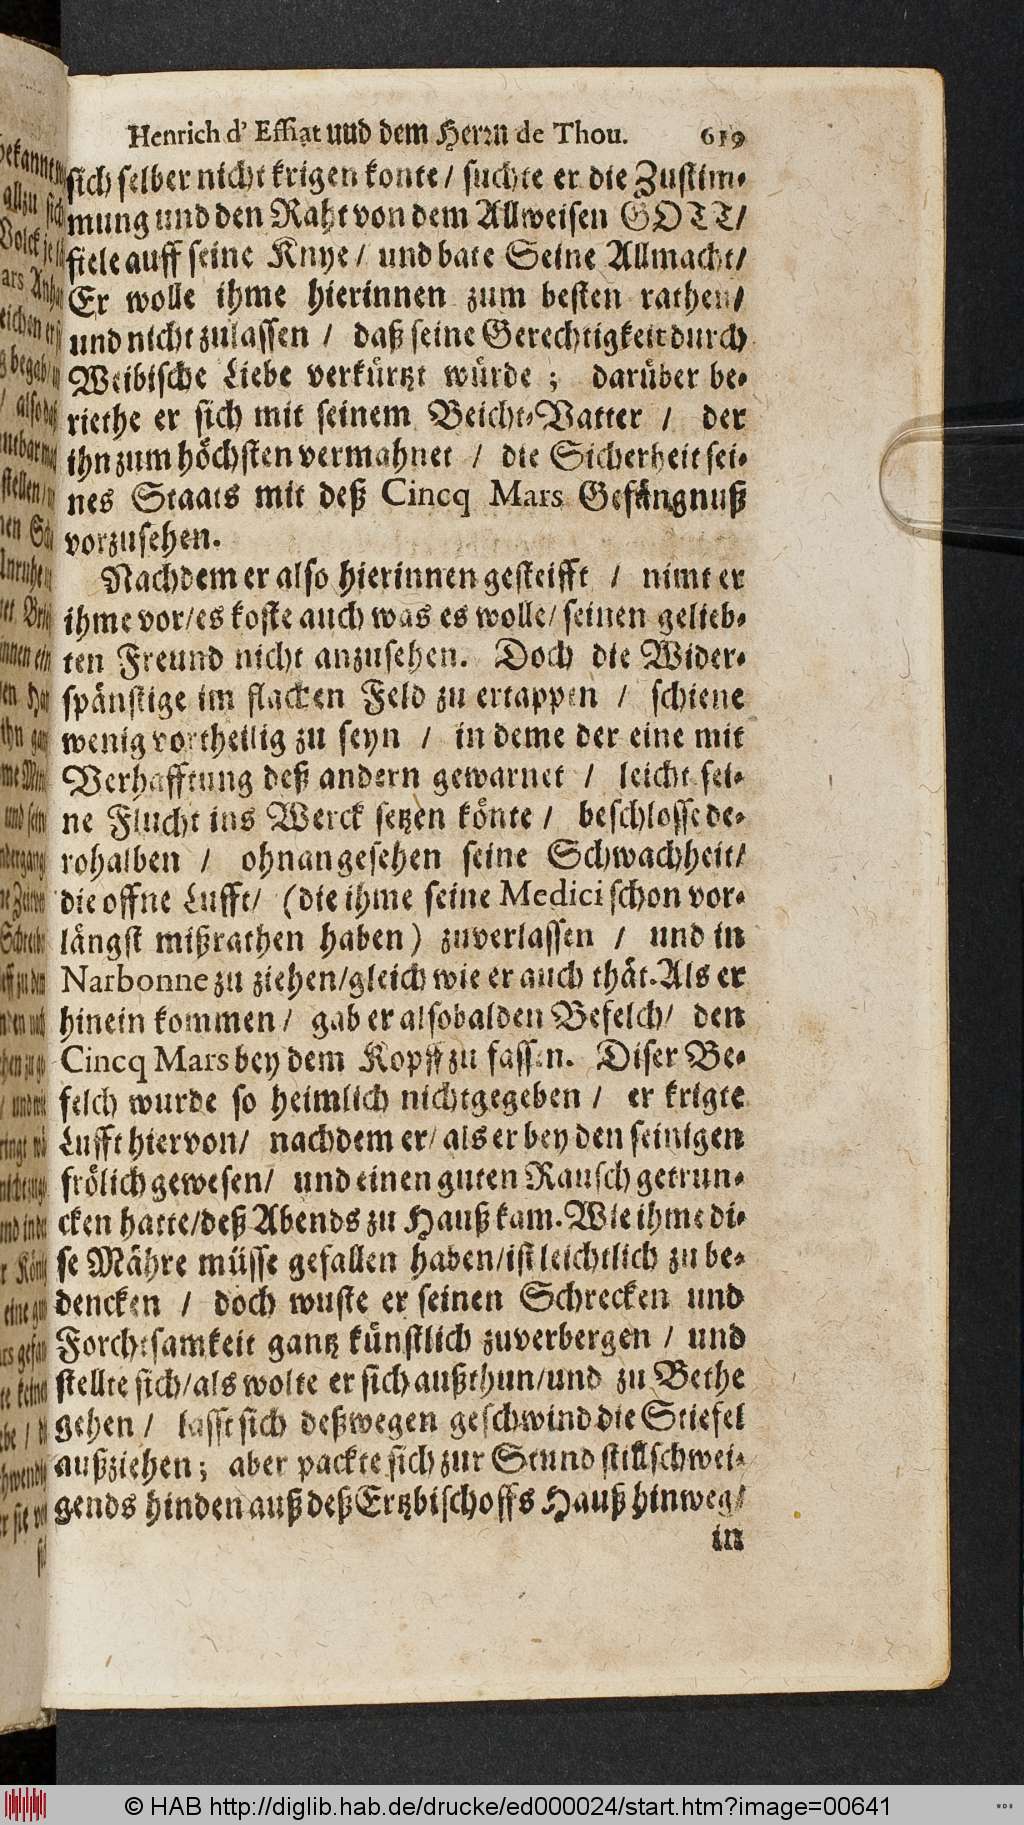 Henrich d' Effiat uud dem Herrn de Thou. 619
sich selber nicht krigen konte / suchte er die Zustim-
mung und den Raht von dem Allweisen GOTT/
fiele auff seine Knye / und bate Seine Allmacht/
Er wolle ihme hierinnen zum besten rathen/
und nicht zulassen / daß seine Gerechtigkeit durch
Weibische Liebe verkürtzt würde ; darüber be-
riethe er sich mit seinem Beicht-Vatter / der
ihn zum höchsten vermahnet / die Sicherheit sei-
nes Staats mit deß Cincq Mars Gefängnuß
vorzusehen.
Nachdem er also hierinnen gesteifft / nimt er
ihme vor/es koste auch was es wolle/ seinen gelieb-
ten Freund nicht anzusehen. Doch die Wider-
spänstige im flacken Feld zu ertappen / schiene
wenig vortheilig zu seyn / in deme der eine mit
Verhafftung deß andern gewarnet / leicht sei-
ne Flucht ins Werck setzen könte / beschlosse de-
rohalben / ohnangesehen seine Schwachheit/
die offne Lufft/ (die ihme seine Medici schon vor-
längst mißrathen haben) zuverlassen / und in
Narbonne zu ziehen/gleich wie er auch thät. Als er
hinein kommen / gab er alsobalden Befelch/ den
Cincq Mars bey dem Kopff zu fassen. Diser Be-
felch wurde so heimlich nicht gegeben / er krigte
Lufft hiervon/ nachdem er/ als er bey den seinigen
frölich gewesen/ und einen guten Rausch getrun-
cken hatte/deß Abends zu Hauß kam. Wie ihme di-
se Mähre müsse gefallen haben/ist leichtlich zu be-
dencken / doch wuste er seinen Schrecken und
Forchtsamkeit gantz künstlich zuverbergen / und
stellte sich/als wolte er sich außthun/und zu Bethe
gehen / lasst sich deßwegen geschwind die Stiefel
außziehen; aber packte sich zur Stund stillschwei-
gends hinden auß deß Ertzbischoffs Hauß hinweg/
in
© HAB http://diglib.hab.de/drucke/ed000024/start.htm?image=00641